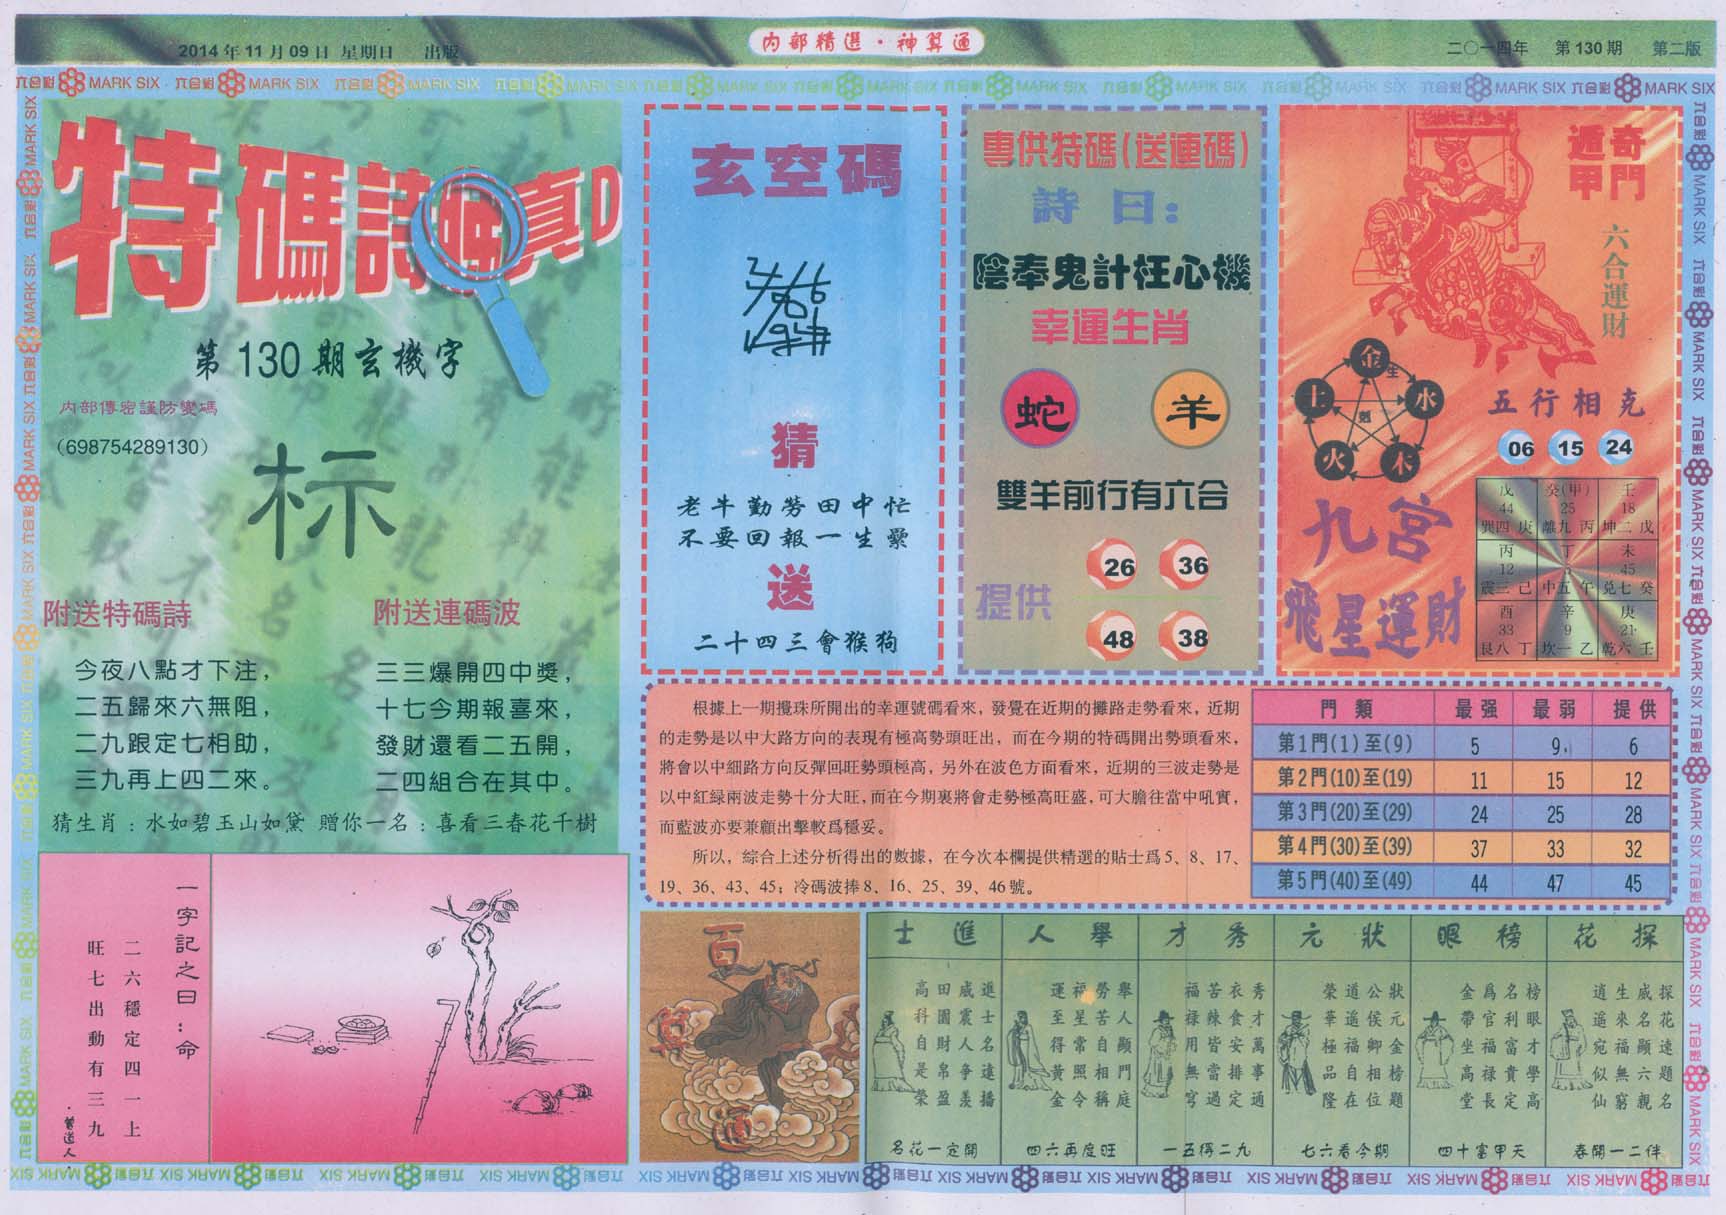 2014年11月09日 星期日 出版
内部精選·神算通
二〇一四年 第130期 第二版
六合彩 MARK SIX
特碼詩 真D
第130期玄機字
内部傳密謹防變碼
(698754289130)
标
附送特碼詩
今夜八點才下注，
二五歸來六無阻，
二九跟定七相助，
三九再上四二來。
附送連碼波
三三爆開四中獎，
十七今期報喜來，
發財還看二五開，
二四組合在其中。
猜生肖：水如碧玉山如黛 贈你一名：喜看三春花千樹
一字記之曰：命
二六穩定四一上
旺七出動有三九
·曾道人·
玄空碼
猜
老牛勤勞田中忙
不要回報一生纍
送
二十四三會猴狗
專供特碼(送連碼)
詩曰：
陰奉鬼計枉心機
幸運生肖
蛇 羊
雙羊前行有六合
提供
26 36
48 38
奇門
遁甲
六合運財
金 生 水 木 火 土 剋
五行相克
06 15 24
九宮
飛星運財
戊 癸(甲) 壬
44 25 18
巽四 庚 離九 丙 坤二 戊
丙 丁 未
12 45
震三 己 中五 午 兌七 癸
酉 辛 庚
33 9 21
艮八 丁 坎一 乙 乾六 壬
根據上一期攪珠所開出的幸運號碼看來，發覺在近期的攤路走勢看來，近期
的走勢是以中大路方向的表現有極高勢頭旺出，而在今期的特碼開出勢頭看來，
將會以中細路方向反彈回旺勢頭極高，另外在波色方面看來，近期的三波走勢是
以中紅緑兩波走勢十分大旺，而在今期裏將會走勢極高旺盛，可大膽往當中吼實，
而藍波亦要兼顧出擊較爲穩妥。
所以，綜合上述分析得出的數據，在今次本欄提供精選的貼士爲5、8、17、
19、36、43、45；冷碼波捧8、16、25、39、46號。
門類 最强 最弱 提供
第1門(1)至(9) 5 9 6
第2門(10)至(19) 11 15 12
第3門(20)至(29) 24 25 28
第4門(30)至(39) 37 33 32
第5門(40)至(49) 44 47 45
百
探花
探花速題名
威名顯六親
生來福無窮
逍遥宛似仙
春開一二伴
榜眼
榜眼才學高
名利富貴定
爲官福禄長
金帶坐高堂
四十富甲天
狀元
狀元金榜題
公侯卿相位
道遥福自在
榮華極品隆
七六看今期
秀才
秀才萬事通
衣食安排定
苦辣皆當過
福禄用無穹
一五得二九
舉人
舉人顯門庭
勞苦自相稱
福星常照令
運至得黄金
四六再度旺
進士
進士名遠播
威震人争羡
田園財帛盈
高科自是榮
名花一定開